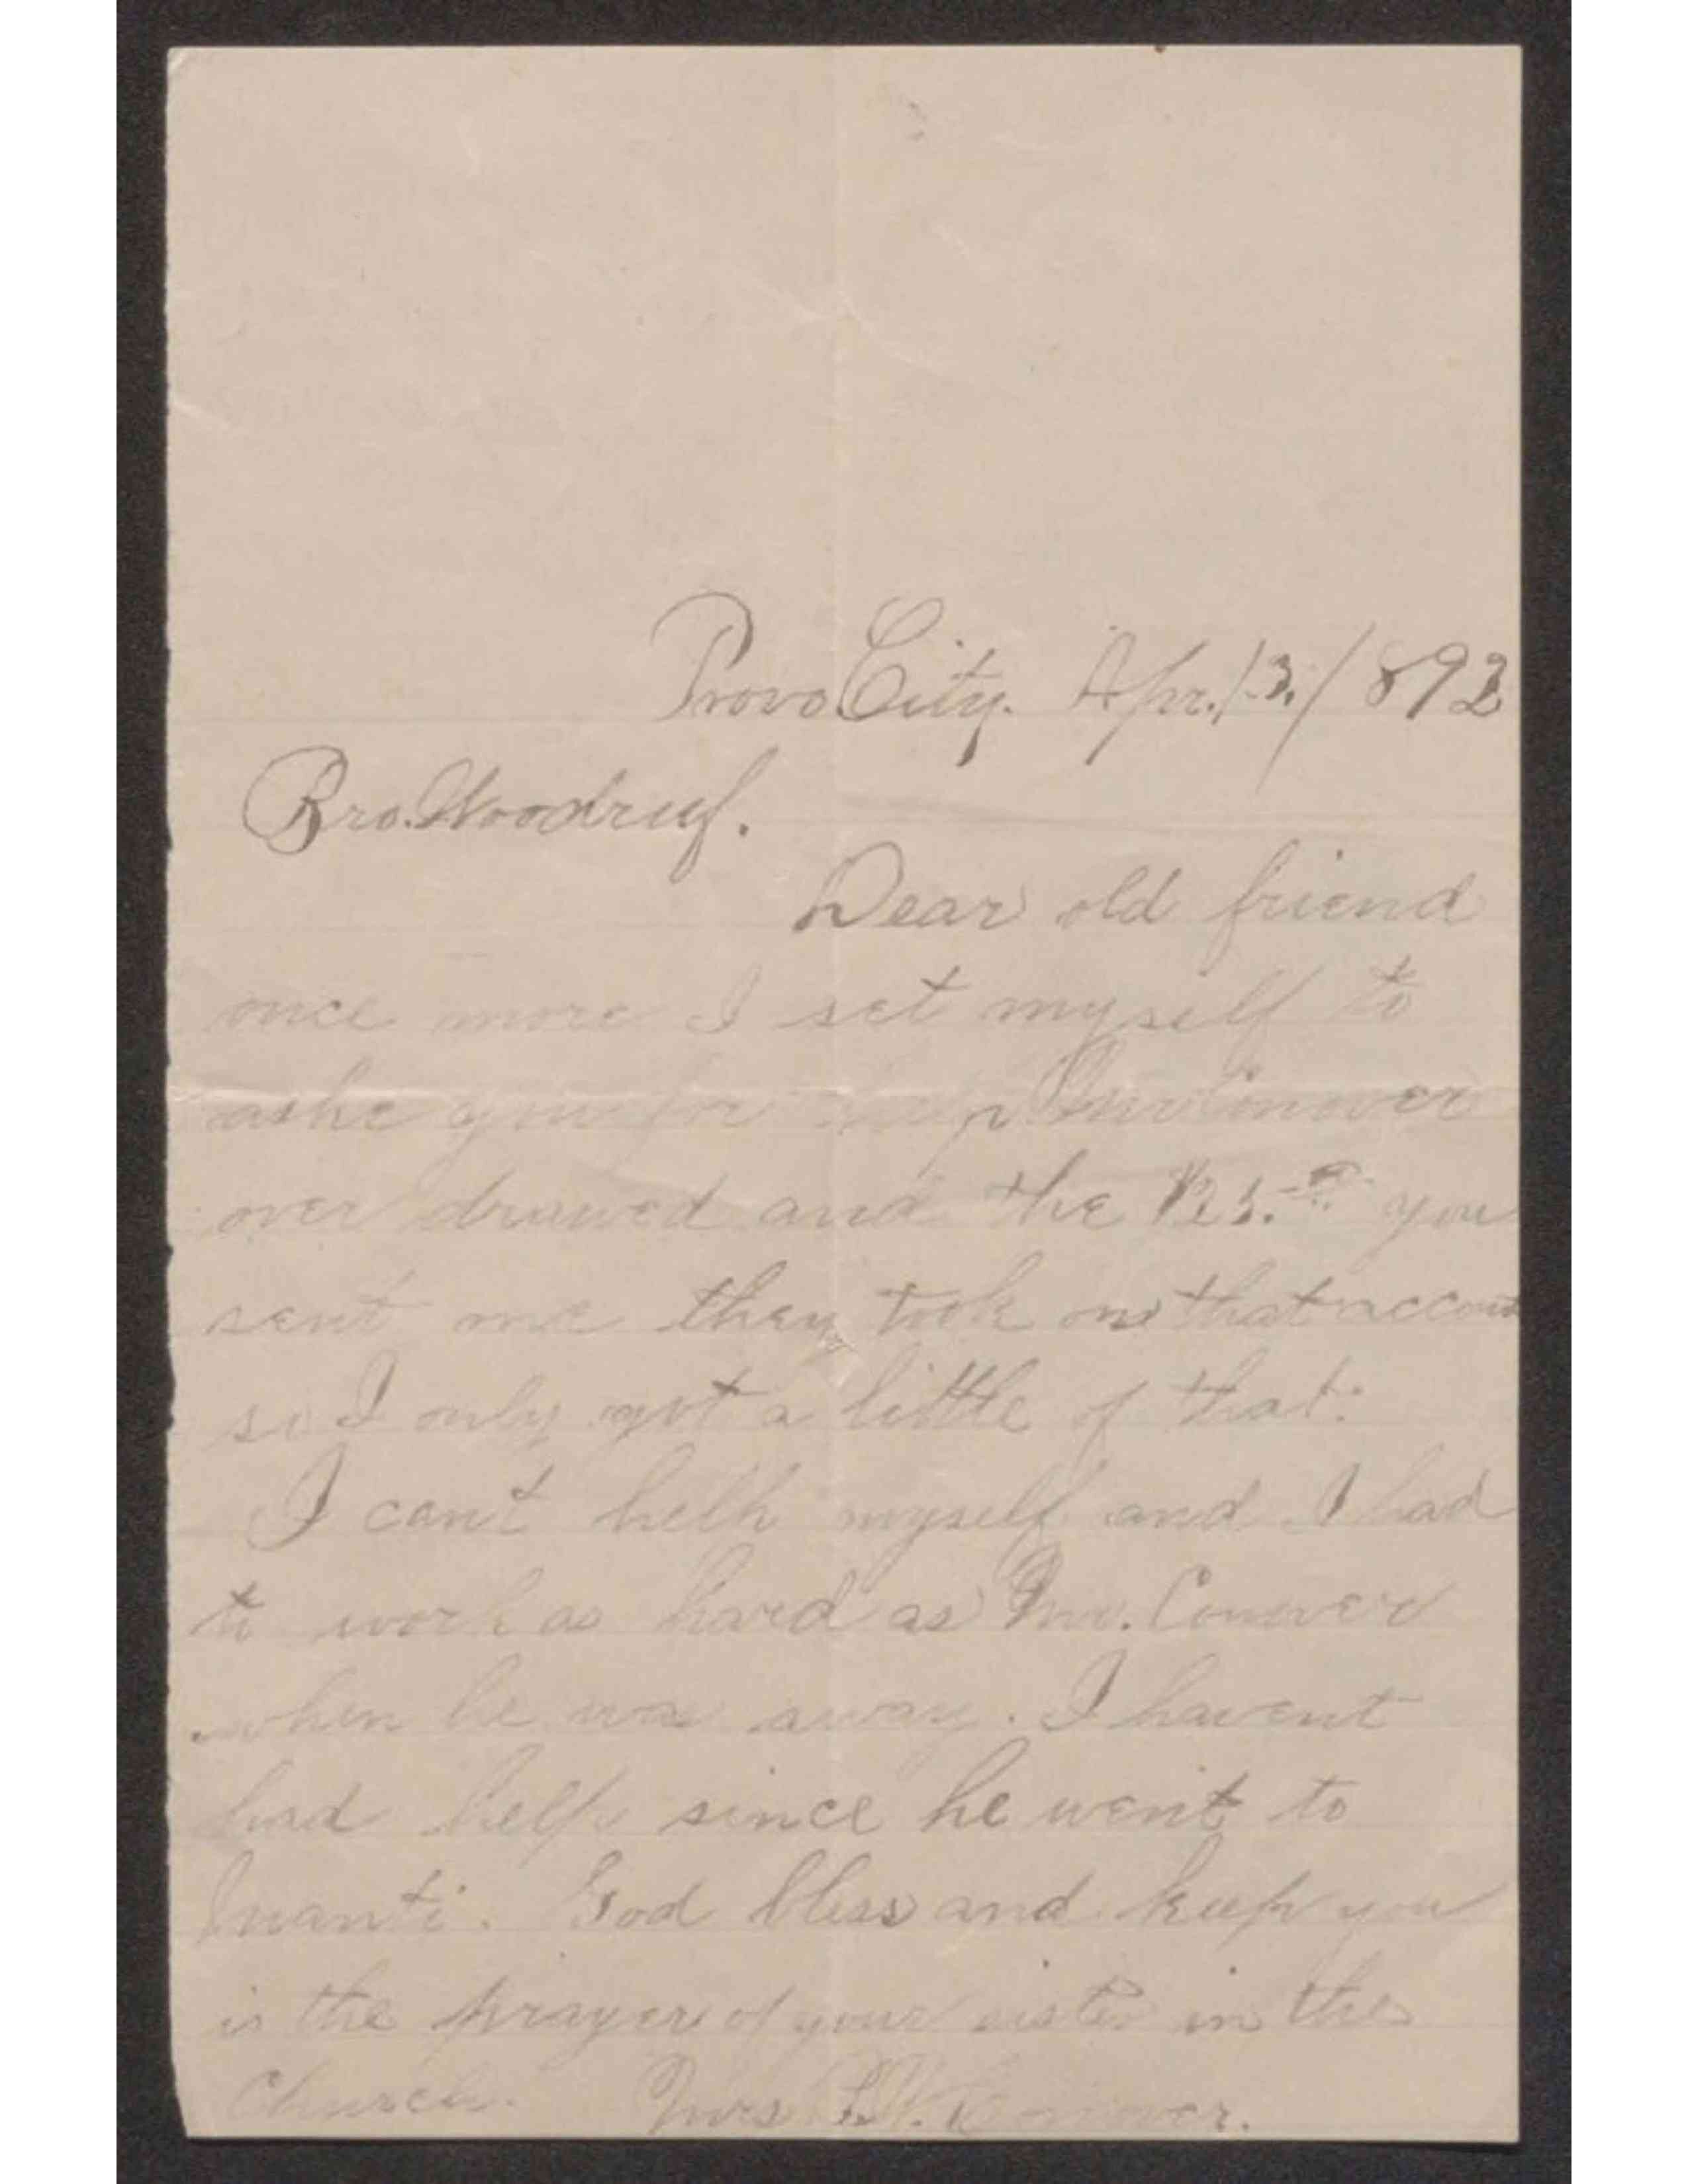 Provo City. Apr. 13. / 1892
Bro. Woodruf.
Dear old friend
once more I set myself to
aske you for help Mr Conover
over drawed and the you
sent me they took on that account
so I only got a little of that.
I cant helh myself and I had
to work as hard as Mr. Conover
when he was away. I havent
had help since he went to
Manti. God bless and keep you
is the prayer of your sister in the
Church. Mrs Conover.